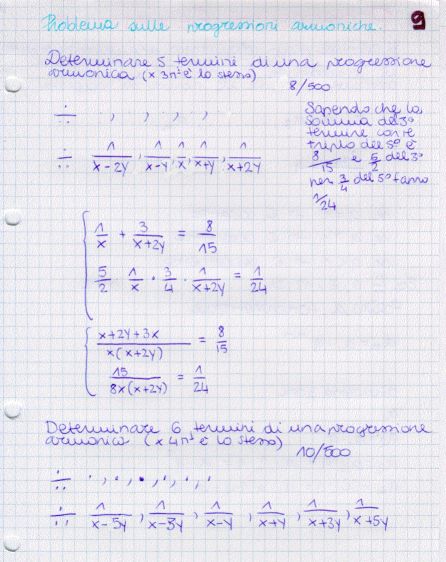 Problema sulle progressioni armoniche. 9
Determinare 5 termini di una progressione
armonica (x 3 n^i è lo stesso)
8/500
÷ . , , . , .
÷ 1/(x-2y), 1/(x-y), 1/x, 1/(x+y), 1/(x+2y)
Sapendo che la
somma del 3°
termine con il
triplo del 5° è
8/15 e 5/2 del 3°
per 3/4 del 5° fanno
1/24
{ 1/x + 3/(x+2y) = 8/15
5/2 · 1/x · 3/4 · 1/(x+2y) = 1/24
{ (x+2y+3x)/(x(x+2y)) = 8/15
15/(8x(x+2y)) = 1/24
Determinare 6 termini di una progressione
armonica (x 4 n^i è lo stesso)
10/500
÷ . , . , . , . , . , .
÷ 1/(x-5y), 1/(x-3y), 1/(x-y), 1/(x+y), 1/(x+3y), 1/(x+5y)